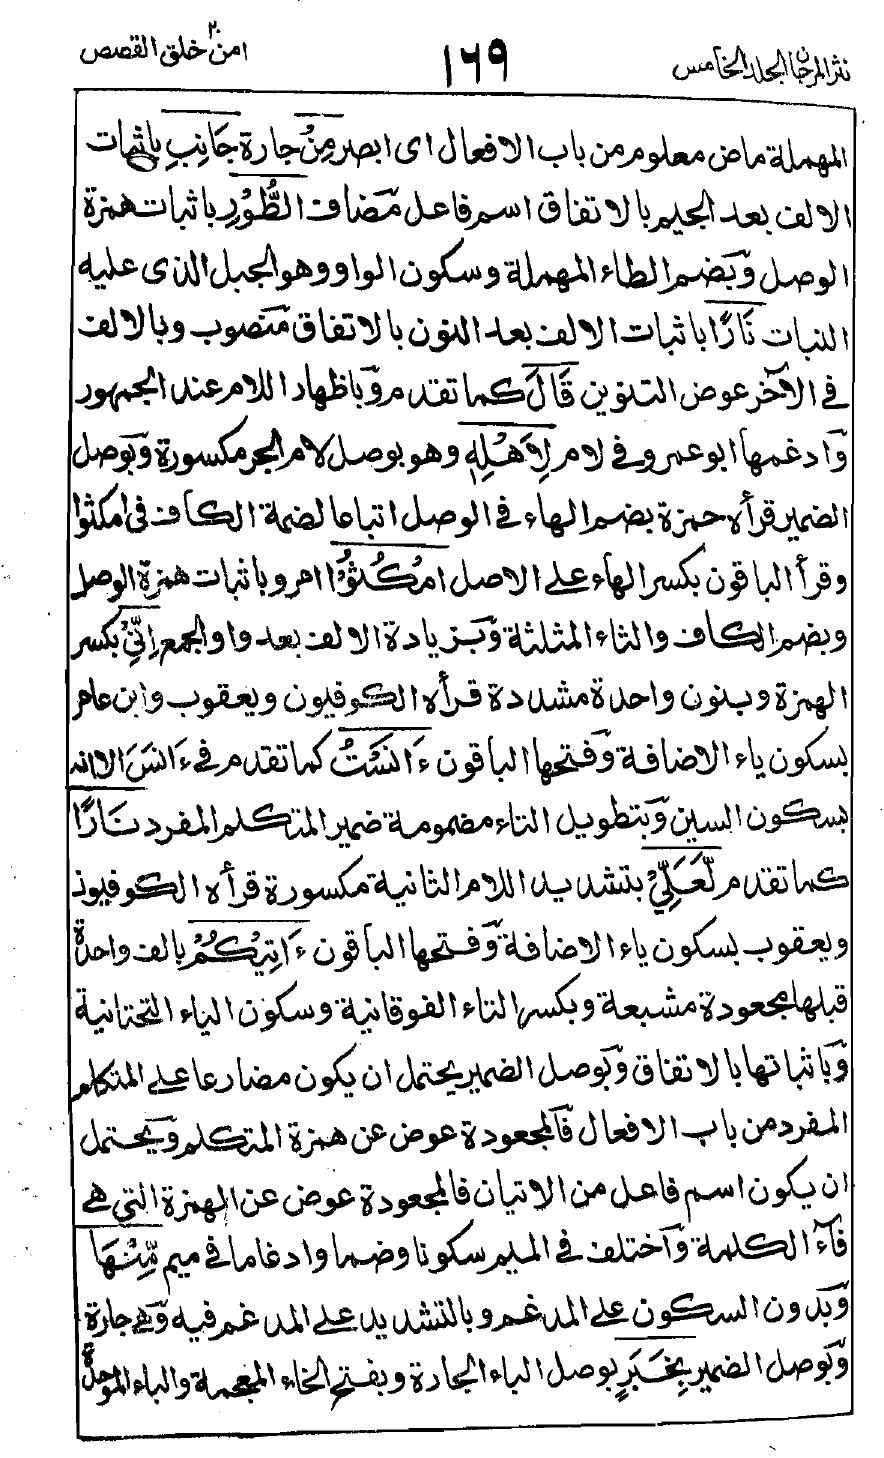 نثر المرجان المجلد الخامس
١٦٩
امن خلق ٢٠ القصص
المهملة ماض معلوم من باب الافعال اى ابصر مِنْ جارة جَانِبِ باثبات
الالف بعد الجيم بالاتفاق اسم فاعل مضاف الطُّوْرِ باثبات همزة
الوصل وبضم الطاء المهملة وسكون الواو وهو الجبل الذى عليه
النبات نَارًا باثبات الالف بعد النون بالاتفاق منصوب وبالالف
فى الآخر عوض التنوين قَالَ كما تقدم وباظهار اللام عند الجمهور
وادغمها ابو عمرو فى لام لِاَهْلِهِ وهو بوصل لام الجر مكسورة وبوصل
الضمير قرأه حمزة بضم الهاء فى الوصل اتباعا لضمة الكاف فى امكثوا
وقرأ الباقون بكسر الهاء على الاصل امْكُثُوْا امر وباثبات همزة الوصل
وبضم الكاف والثاء المثلثة وبزيادة الالف بعد واو الجمع اِنِّيْ بكسر
الهمزة وبنون واحدة مشددة قرأه الكوفيون ويعقوب وابن عامر
بسكون ياء الاضافة وفتحها الباقون ءَانَسْتُ كما تقدم فى ءَانَسَ الا انه
بسكون السين وبتطويل التاء مضمومة ضمير المتكلم المفرد نَارًا
كما تقدم لَّعَلِّيْ بتشديد اللام الثانية مكسورة قرأه الكوفيون
ويعقوب بسكون ياء الاضافة وفتحها الباقون ءَاتِيْكُمْ بالف واحدة
قبلها مجعودة مشبعة وبكسر التاء الفوقانية وسكون الياء التحتانية
وباثباتها بالاتفاق وبوصل الضمير يحتمل ان يكون مضارعا على المتكلم
المفرد من باب الافعال فالمجعودة عوض عن همزة المتكلم ويحتمل
ان يكون اسم فاعل من الاتيان فالمجعودة عوض عن الهمزة التي هي
فآء الكلمة واختلف في الميم سكونا وضما وادغاما في ميم مِّنْهَا
وبدون السكون على المدغم وبالتشديد على المدغم فيه وهي جارة
وبوصل الضمير بِخَبَرٍ بوصل الباء الجارة وبفتح الخاء المعجمة والباء الموحدة